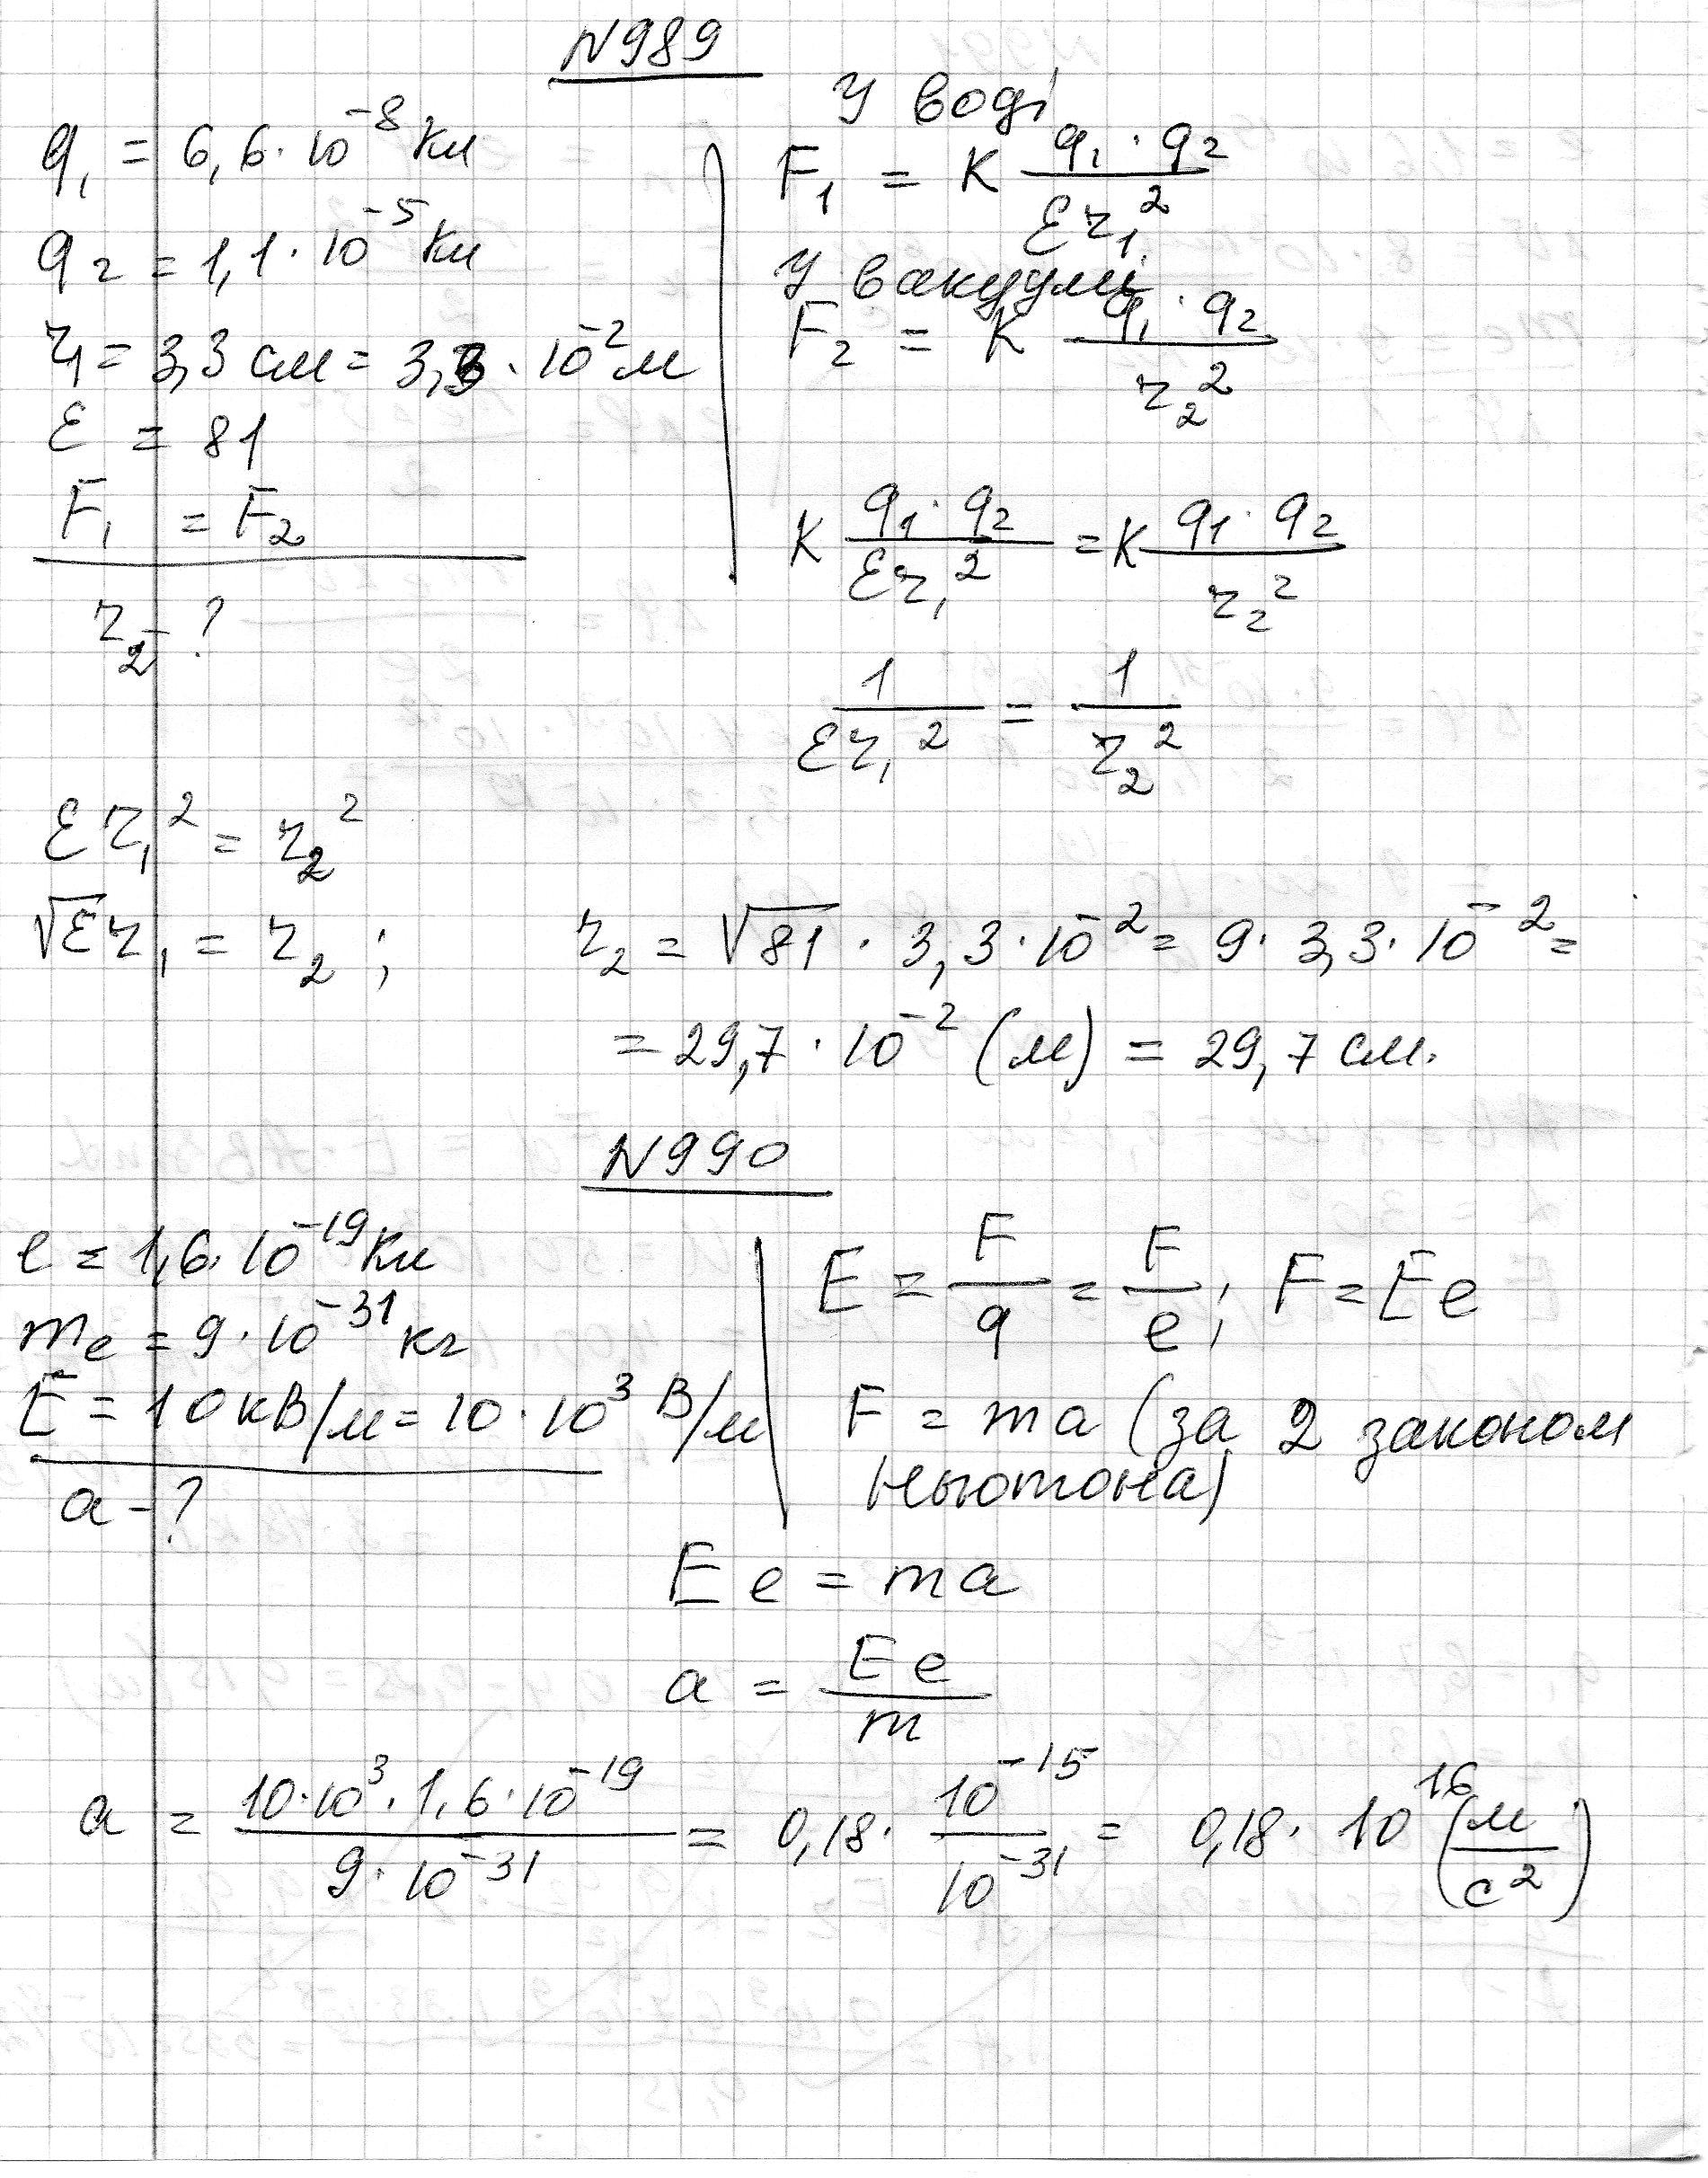 N989
q₁ = 6,6·10⁻⁸ Кл
q₂ = 1,1·10⁻⁵ Кл
r₁ = 3,3 см = 3,3·10⁻² м
ε = 81
F₁ = F₂
r₂ - ?
У воді
F₁ = K (q₁·q₂)/(εr₁²)
У вакуумі
F₂ = K (q₁·q₂)/(r₂²)
K (q₁·q₂)/(εr₁²) = K (q₁·q₂)/(r₂²)
1/(εr₁²) = 1/(r₂²)
εr₁² = r₂²
√ε r₁ = r₂ ; r₂ = √81 · 3,3·10⁻² = 9·3,3·10⁻² =
= 29,7·10⁻² (м) = 29,7 см.
N990
e = 1,6·10⁻¹⁹ Кл
mₑ = 9·10⁻³¹ кг
E = 10 кВ/м = 10·10³ В/м
a - ?
E = F/q = F/e ; F = Ee
F = ma (за 2 законом
Ньютона)
Ee = ma
a = Ee/m
a = (10·10³·1,6·10⁻¹⁹)/(9·10⁻³¹) = 0,18 · 10⁻¹⁵/10⁻³¹ = 0,18·10¹⁶ (м/с²)